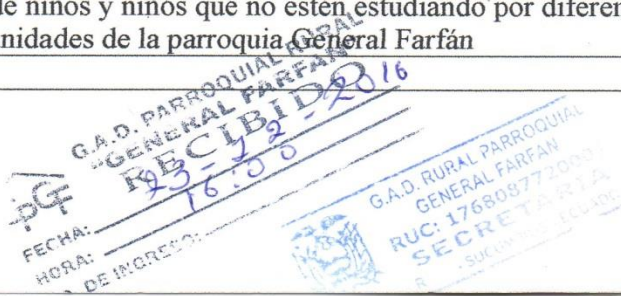 de niños y niños que no estén estudiando por diferen
nidades de la parroquia General Farfán
G.A.D. PARROQUIAL RURAL
"GENERAL FARFAN"
RECIBIDO
PGF
FECHA: 23-12-2016
HORA: 16:00
DE INGRESO:
G.A.D. RURAL PARROQUIAL
GENERAL FARFAN
RUC: 1768087720001
SECRETARIA